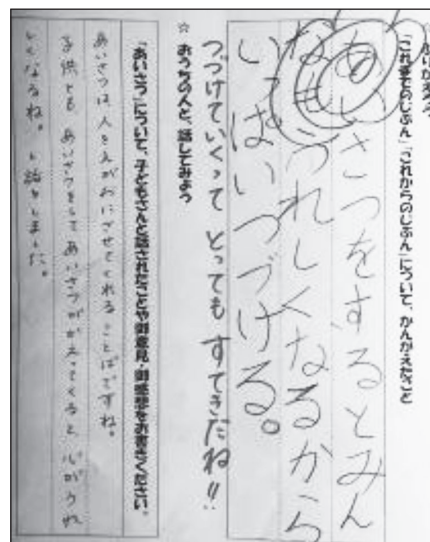 ☆ ふりかえろう
「これまでのじぶん」「これからのじぶん」について、かんがえたこと
あいさつをするとみん
なもうれしくなるから
いっぱいつづける。
つづけていくって とっても すてきだね!!
☆ おうちの人と、話してみよう
「あいさつ」について、子どもさんと話されたことや御意見・御感想をお書きください。
あいさつは人をえがおにさせてくれることばですね。
子供とも、あいさつをして あいさつがかえってくると、心がうれ
しくなるね。と話をしました。